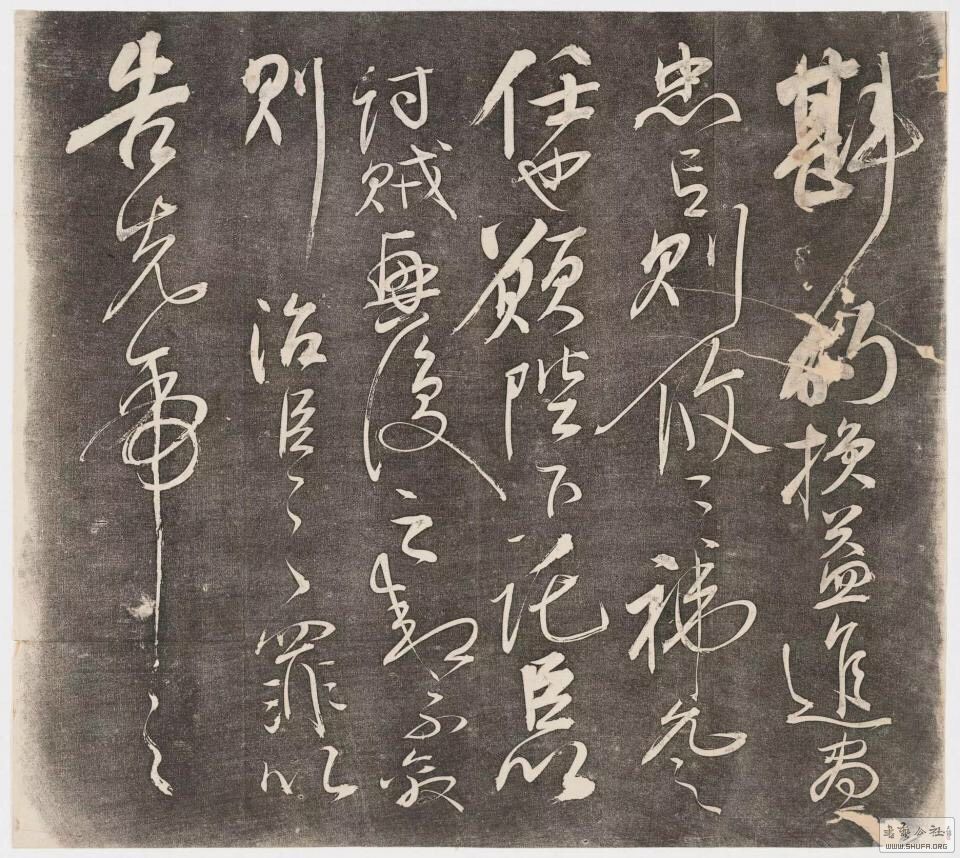 斟酌損益進盡
忠言則攸之禕允之
任也願陛下託臣以
討賊興復之效不效
則治臣之罪以
告先帝之
WWW.SHUFA.ORG